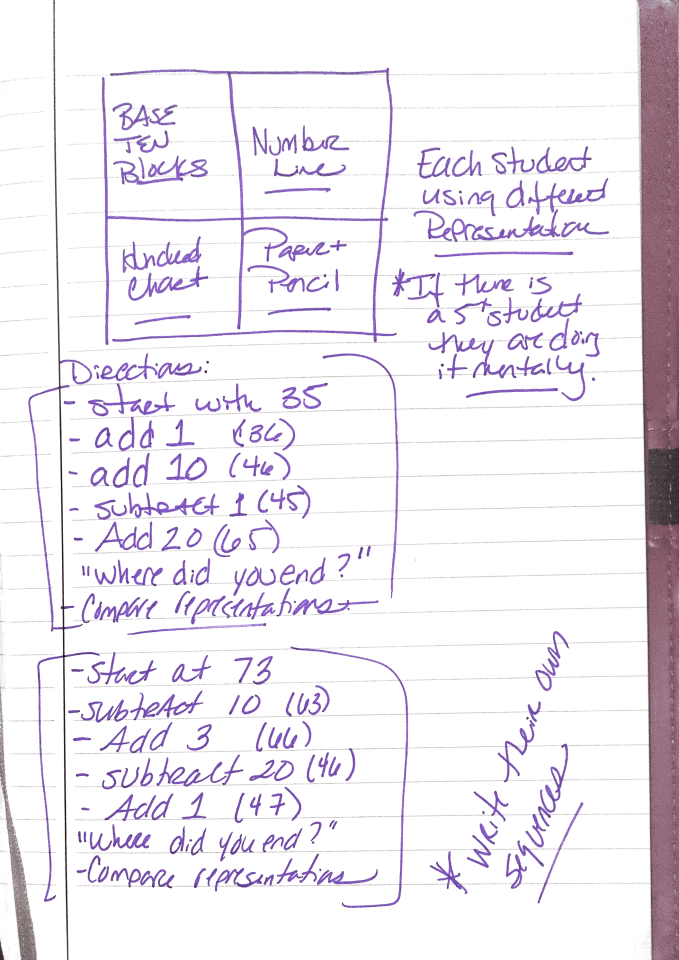 BASE
TEN
BLOCKS
Number
Line
Hundred
Chart
Paper +
Pencil
Each student
using different
Representation
*If there is
a 5th student
they are doing
it mentally.
Directions:
- start with 35
- add 1 (36)
- add 10 (46)
- subtract 1 (45)
- Add 20 (65)
"Where did you end?"
- Compare representations
- Start at 73
- subtract 10 (63)
- Add 3 (66)
- subtract 20 (46)
- Add 1 (47)
"Where did you end?"
- Compare representations
* Write their own
sequences